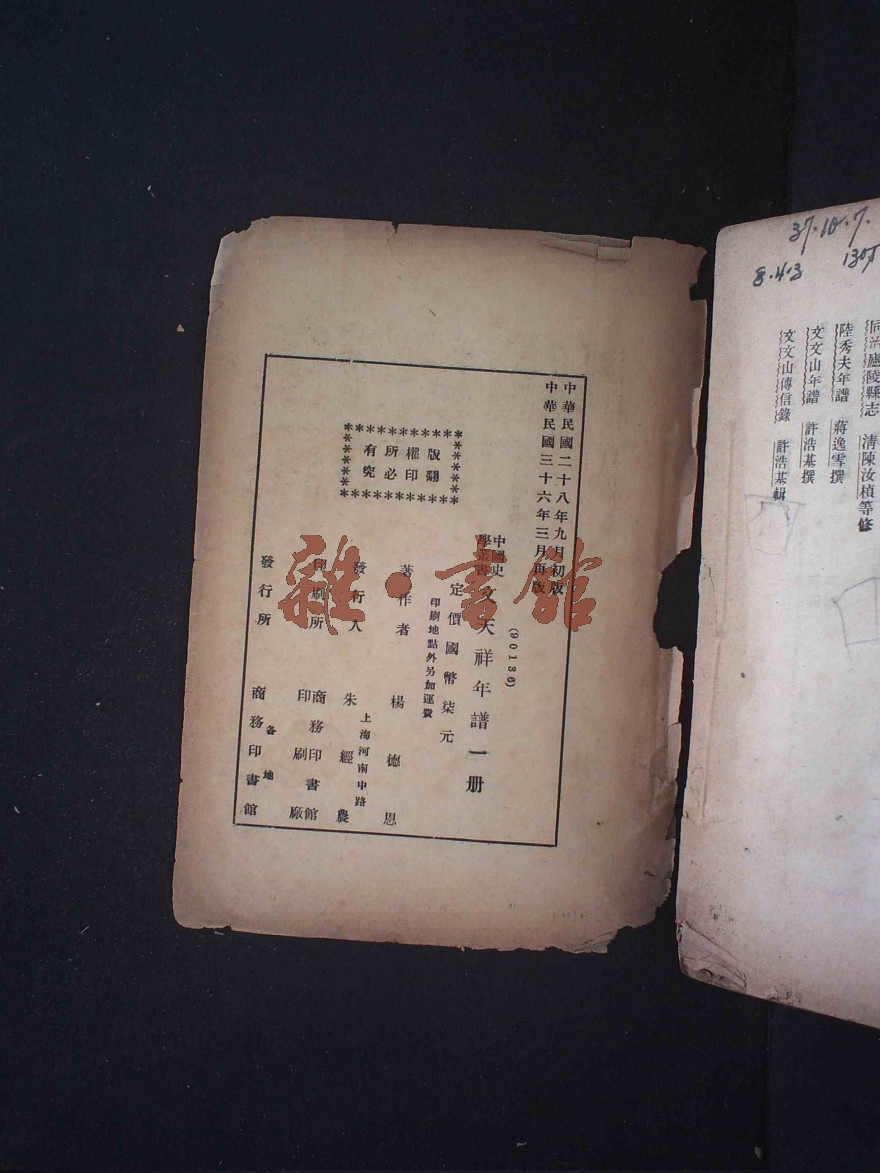 37.10.7.
8.4.3
同治廬陵縣志　清陳汝楨等修
陸秀夫年譜　蔣逸雪撰
文文山年譜　許浩基撰
文文山傳信錄　許浩基輯
中華民國二十八年九月初版
中華民國三十六年三月再版
(90136)
中國史學叢書
文天祥年譜一册
定價國幣柒元
印刷地點外另加運費
著作者　楊德恩
發行人　朱經農
上海河南中路
印刷所　商務印書館印刷廠
發行所　商務印書館
各地
版權所有
翻印必究
雜·書館